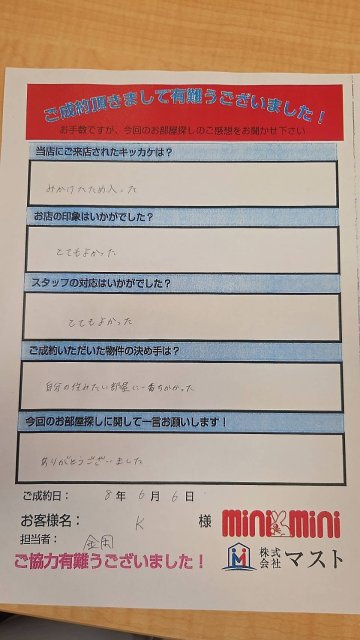 ご成約頂きまして有難うございました!
お手数ですが、今回のお部屋探しのご感想をお聞かせ下さい
当店にご来店されたキッカケは?
みかけたため入った
お店の印象はいかがでした?
とてもよかった
スタッフの対応はいかがでした?
とてもよかった
ご成約いただいた物件の決め手は?
自分の住みたい部屋に一番ちかかった
今回のお部屋探しに関して一言お願いします!
ありがとうございました
ご成約日: 8年 6月 6日
お客様名: K 様
mini mini
担当者:
株式会社 マスト
ご協力有難うございました!